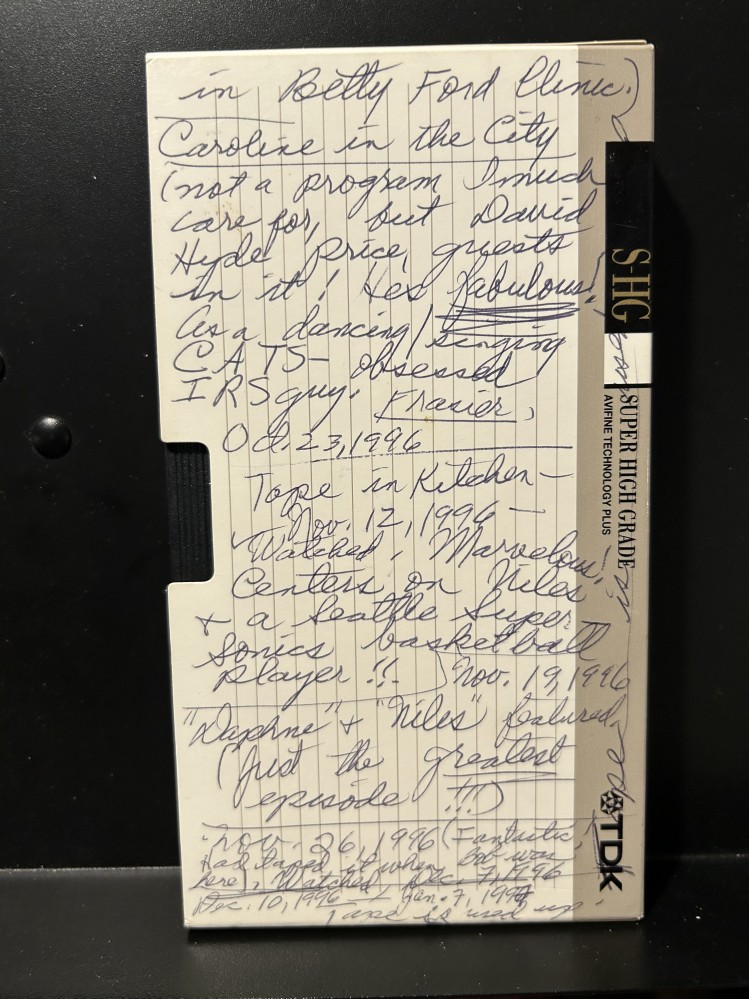 in Betty Ford Clinic.)
Caroline in the City
(not a program I much
care for, but David
Hyde Price guests
in it! Hes fabulous!
As a dancing/singing
CATS- obsessed
IRS guy. Frasier,
Oct. 23, 1996
Tape in Kitchen-
Nov. 12, 1996-
Watched. Marvelous!
Centers on Niles
+ a Seattle Super
Sonics basketball
player!!) Nov. 19, 1996
"Daphne" + "Niles" featured
(Just the greatest
episode!!!)
Nov. 26, 1996 (Fantastic,
Had taped it when Bob was
here), Watched, Dec. 7, 1996
Dec. 10, 1996 + Jan. 7, 1997
Tape is used up.
S-HG
SUPER HIGH GRADE
AVIFINE TECHNOLOGY PLUS
TDK